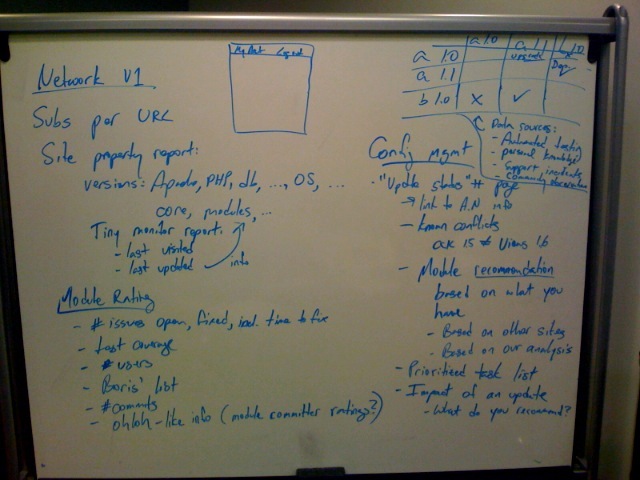 Network V1
Subs per URL
Site property report:
versions: Apache, PHP, db, ..., OS, ...
core, modules, ...
Tiny monitor report:
- last visited
- last updated
info
Module Rating
- # issues open, fixed, incl. time to fix
- test coverage
- # users
- Boris' list
- # commits
- ohloh-like info (module committer ratings?)
My Acct Logout
a 1.0 a 1.1 b 1.0
a 1.0 upgrade X
Dep.
a 1.1
b 1.0 X ✓
Data sources:
- Automated testing
- personal knowledge
- Support incidents
- Community documentation
Config mgmt
- "Update status" # page
→ link to A.N info
- known conflicts
≠ Views 1.6
- Module recommendation
based on what you
have
- Based on other sites
- Based on our analysis
- Prioritized task list
- Impact of an update
- What do you recommend?